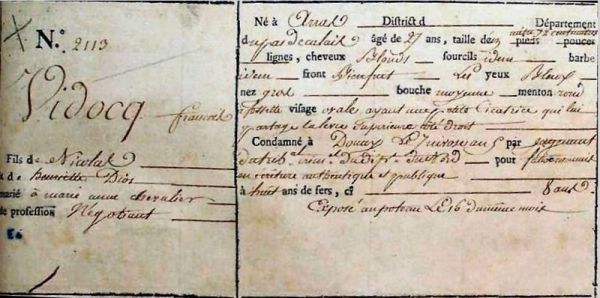 N.° 2113
Vidocq
françois
Fils de Nicolas
& d Henriette Dion
marié à marie anne chevalier
de profession Négotiant
Né à Arras District d Département
d u pas de calais âgé de 27 ans, taille de mètre 72 centimètres pieds pouces
lignes, cheveux Blonds sourcils idem barbe
idem front Les yeux Bleux
nez gros bouche moyenne menton rond
à fossette visage ovale ayant une petite Cicatrice qui lui
partage la levre Superieure côté droit
Condamné à Douay Le 7 nivose an 5 par jugement
du trib.al crim.el du dép.t du nord pour faux commis
en ecriture authentique et publique
à huit ans de fers, ci 8 ans
Exposé au poteau Le 16 du même mois